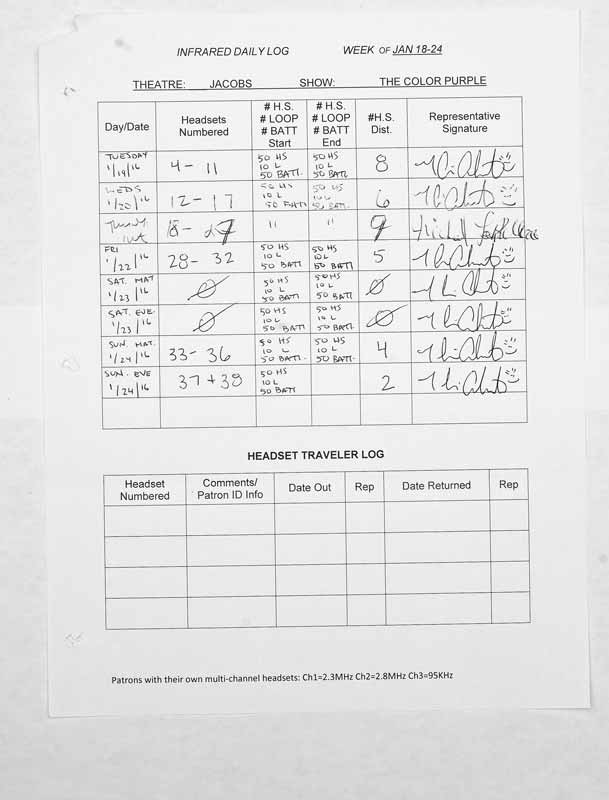 INFRARED DAILY LOG WEEK OF JAN 18-24
THEATRE: JACOBS SHOW: THE COLOR PURPLE
Day/Date Headsets Numbered # H.S. # LOOP # BATT Start # H.S. # LOOP # BATT End #H.S. Dist. Representative Signature
TUESDAY 1/19/16 4 - 11 50 HS 10 L 50 BATT. 50 HS 10 L 50 BATT. 8
WEDS 1/20/16 12 - 17 50 HS 10 L 50 BATT 50 HS 10 L 50 BATT. 6
18 - 27 " " 9
FRI 1/22/16 28 - 32 50 HS 10 L 50 BATT 50 HS 10 L 50 BATT 5
SAT. MAT 1/23/16 Ø 50 HS 10 L 50 BATT 50 HS 10 L 50 BATT Ø
SAT. EVE. 1/23/16 Ø 50 HS 10 L 50 BATT. 50 HS 10 L 50 BATT. Ø
SUN. MAT. 1/24/16 33 - 36 50 HS 10 L 50 BATT. 50 HS 10 L 50 BATT. 4
SUN. EVE 1/24/16 37 + 38 50 HS 10 L 50 BATT 2
HEADSET TRAVELER LOG
Headset Numbered Comments/ Patron ID Info Date Out Rep Date Returned Rep
Patrons with their own multi-channel headsets: Ch1=2.3MHz Ch2=2.8MHz Ch3=95KHz